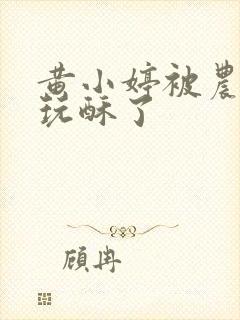 黄小婷被農
玩酥了
顧冉